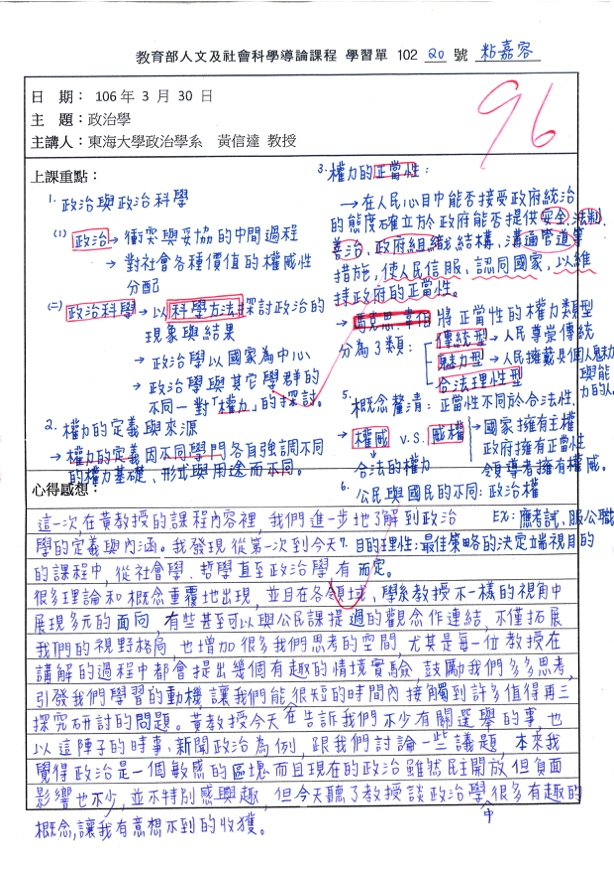 教育部人文及社會科學導論課程 學習單 102 20 號 粘嘉容
96
日 期： 106 年 3 月 30 日
主 題：政治學
主講人：東海大學政治學系 黃信達 教授
上課重點：
1. 政治與政治科學
(一) 政治→衝突與妥協的中間過程
→對社會各種價值的權威性
分配
(二) 政治科學→以科學方法探討政治的
現象與結果
→政治學以國家為中心
→政治學與其它學群的
不同－對「權力」的探討。
2. 權力的定義與來源
→權力的定義因不同學門各自強調不同
的權力基礎、形式與用途而不同。
3. 權力的正當性：
→在人民心目中能否接受政府統治
的態度確立於政府能否提供安全、法制、
善治、政府組織結構、溝通管道等
措施，使人民信服、認同國家，以維
持政府的正當性。
→馬克思·韋伯將正當性的權力類型
分為3類：
傳統型→人民尊崇傳統
魅力型→人民擁戴具個人魅力
與能
力的人。
合法理性型
5. 概念釐清：正當性不同於合法性，
→權威 v.s. 威權→國家擁有主權
政府擁有正當性
領導者擁有權威。
合法的權力
6. 公民與國民的不同：政治權
Ex：應考試、服公職
7. 目的理性：最佳策略的決定端視目的
而定。
心得感想：
這一次，在黃教授的課程內容裡，我們進一步地了解到政治
學的定義與內涵。我發現從第一次到今天
的課程中，從社會學、哲學直至政治學有
很多理論和概念重覆地出現，並且在各領域、學系教授不一樣的視角中
展現多元的面向，有些甚至可以與公民課提過的觀念作連結，不僅拓展
我們的視野格局，也增加很多我們思考的空間，尤其是每一位教授在
講解的過程中都會提出幾個有趣的情境實驗，鼓勵我們多多思考，
引發我們學習的動機，讓我們能很短的時間內接觸到許多值得再三
探究研討的問題。黃教授今天在告訴我們不少有關選舉的事，也
以這陣子的時事、新聞政治為例，跟我們討論一些議題，本來我
覺得政治是一個敏感的區塊而且現在的政治雖然民主開放，但負面
影響也不少，並不特別感興趣，但今天聽了教授談政治學中很多有趣的
概念，讓我有意想不到的收獲。